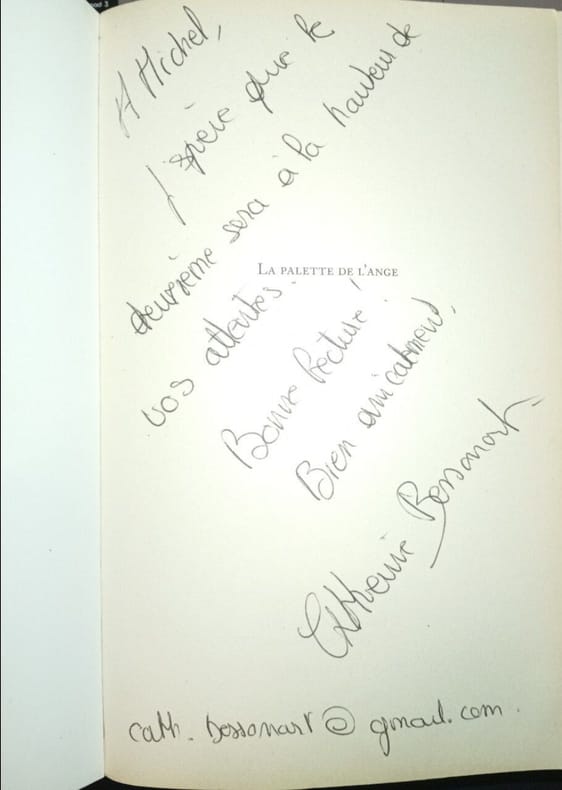 A Michel,
J'espère que le
deuxième sera à la hauteur de
vos attentes.
LA PALETTE DE L'ANGE
Bonne lecture !
Bien amicalement,
Catherine Bessonart
cath.bessonart@gmail.com.